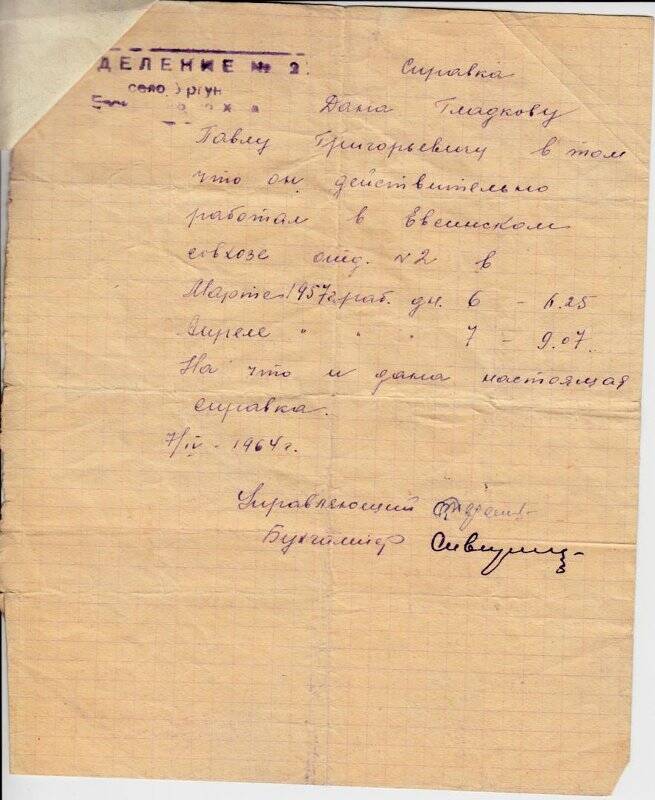 ДЕЛЕНИЕ № 2.
село Ургун
Справка
Дана Гладкову
Павлу Григорьевичу в том
что он действительно
работал в Евсинском
совхозе отд. N2 в
Марте 1957г раб. дн. 6 - 6.25
Апреле " " " 7 - 9.07.
На что и дана настоящая
справка.
7/IV - 1964г.
Управляющий
Бухгалтер